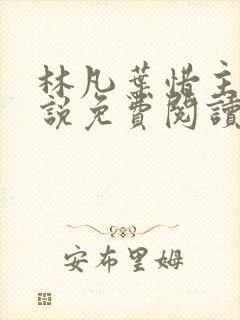 林凡葉惜主
說免費閱讀
安布里姆